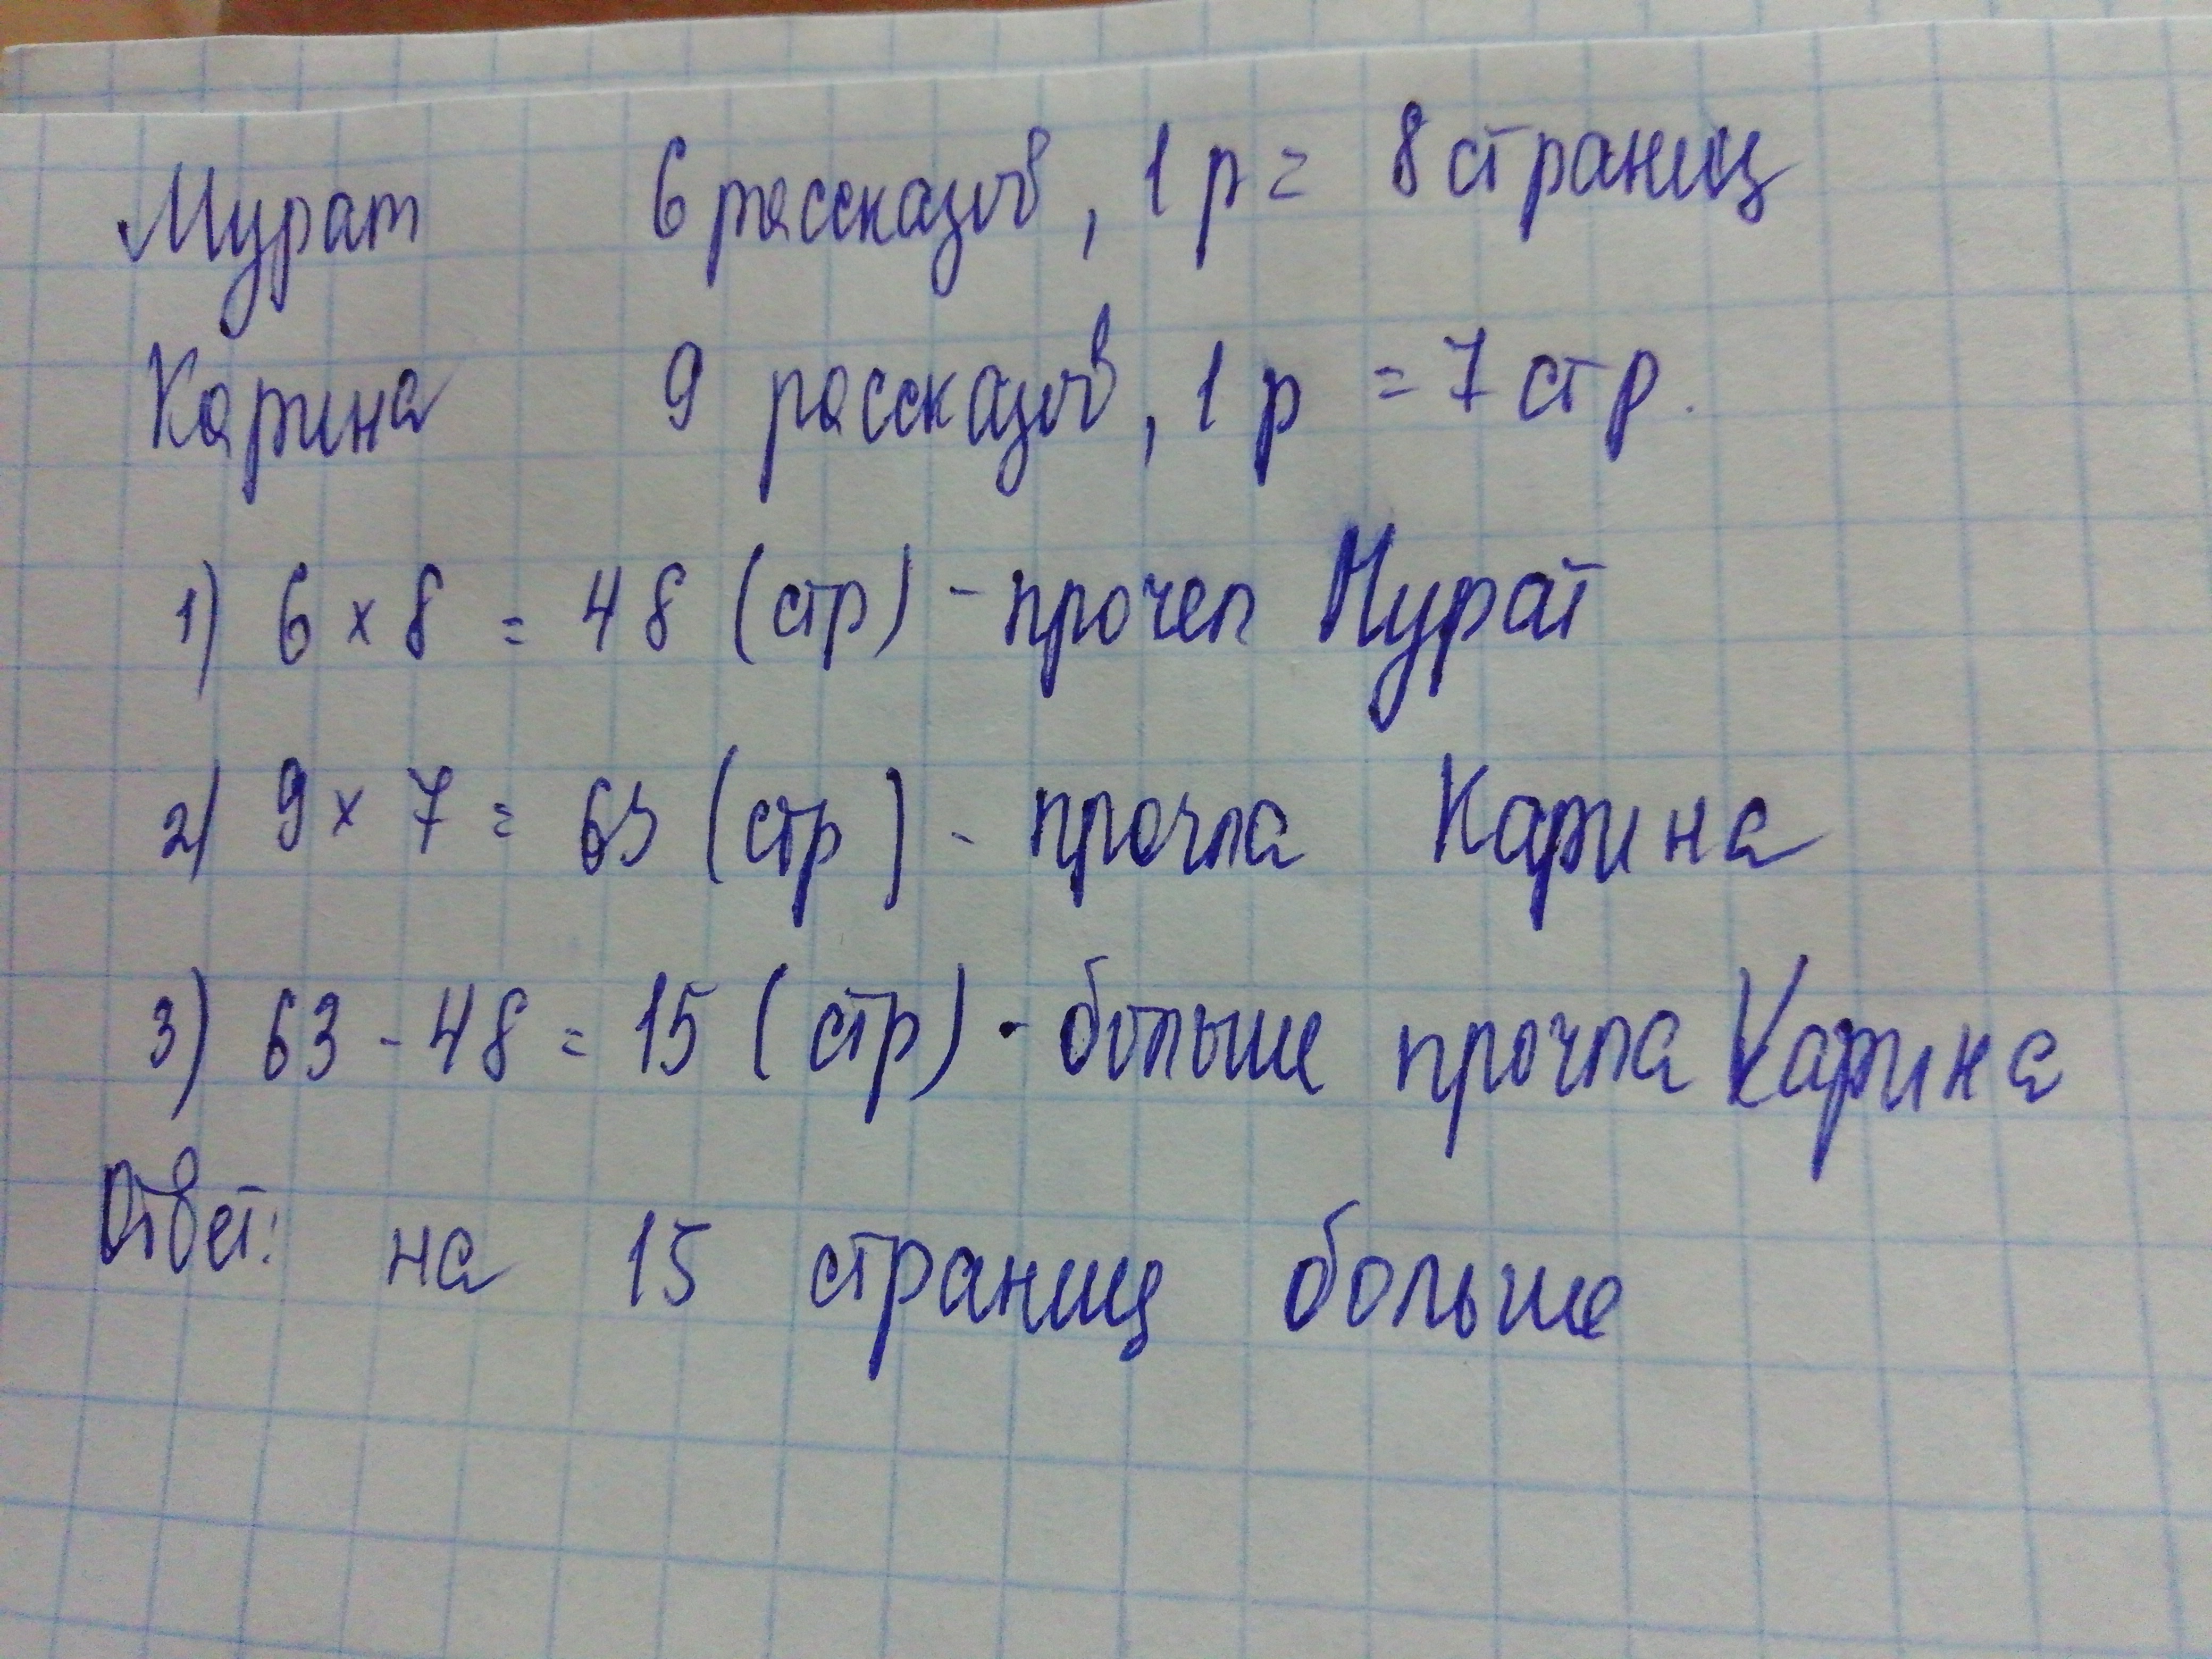 Мурат 6 рассказов, 1 р = 8 страниц
Карина 9 рассказов, 1 р = 7 стр.
1) 6 × 8 = 48 (стр) - прочел Мурат
2) 9 × 7 = 63 (стр) - прочла Карина
3) 63 - 48 = 15 (стр) - больше прочла Карина
Ответ: на 15 страниц больше